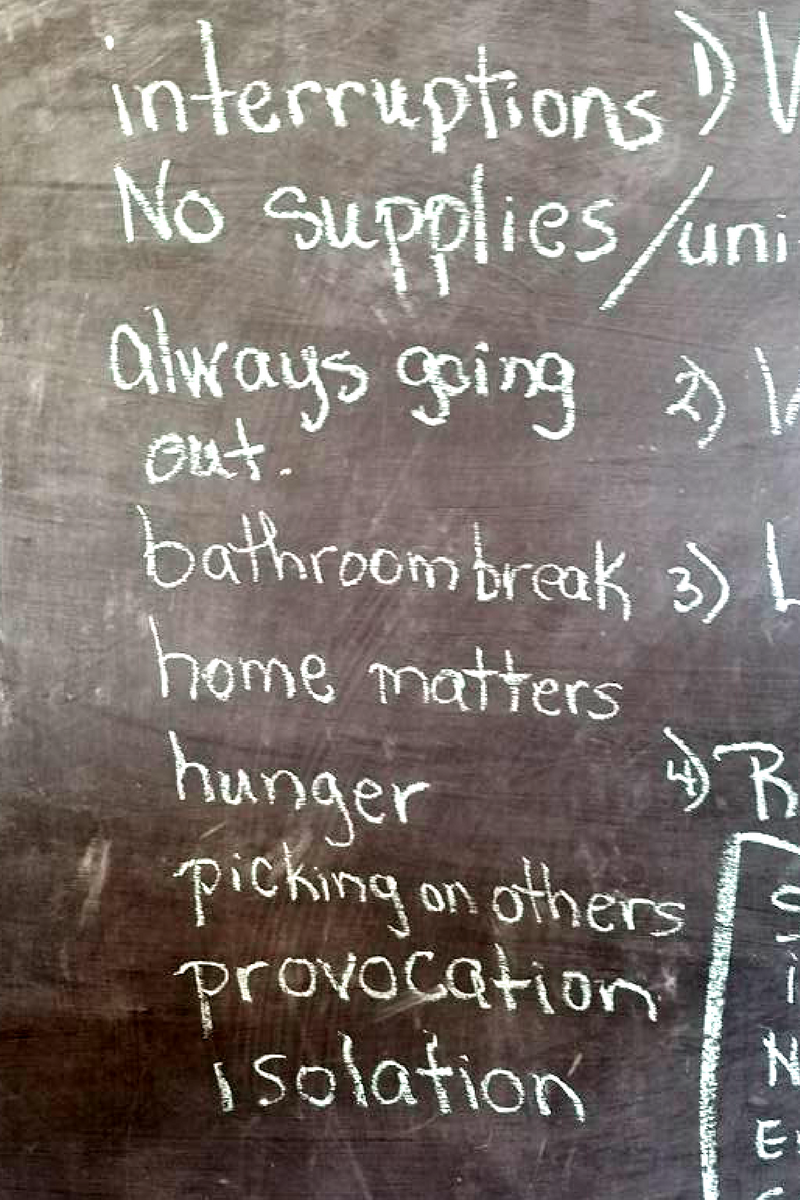 interruptions 1)
No supplies/uni
always going 2)
out.
bathroom break 3) L
home matters
hunger 4) R
picking on others
provocation
isolation
N